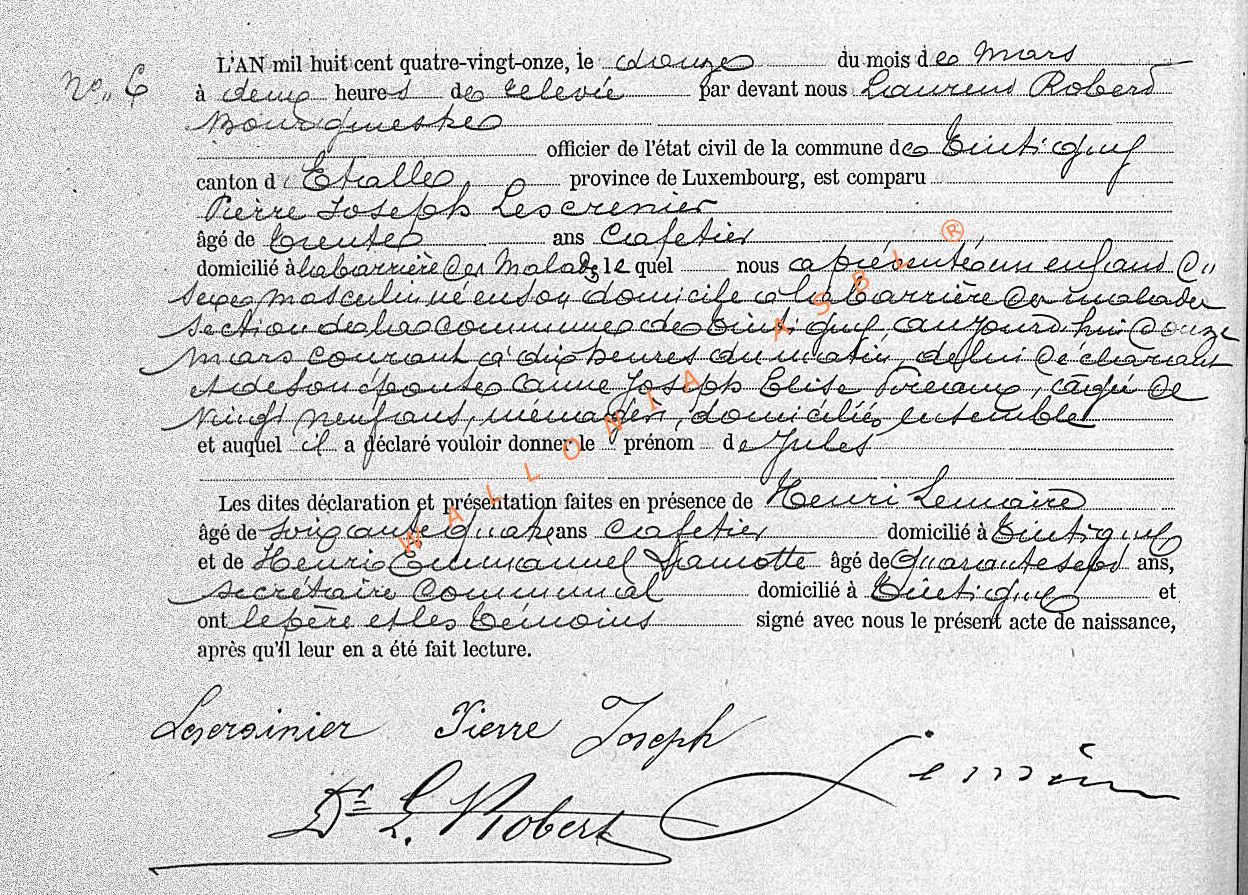 No 6
L'AN mil huit cent quatre-vingt-onze, le douze du mois de Mars
à deux heures de relevée par devant nous Laurent Robert
Bourgmestre
officier de l'état civil de la commune de Tintigny
canton d'Etalle province de Luxembourg, est comparu
Pierre Joseph Lescrenier
âgé de trente ans cafetier
domicilié à la barrière des Malades lequel nous a présenté un enfant du
sexe masculin né en son domicile à la barrière des malades
section de la commune de Tintigny aujourd'hui douze
mars courant à dix heures du matin, de lui déclarant
et de son épouse Anne Joseph Elise, âgée de
vingt neuf ans, ménagère, domiciliés ensemble
et auquel il a déclaré vouloir donner le prénom de Jules
Les dites déclaration et présentation faites en présence de Henri Lemaire
âgé de soixante quatre ans cafetier domicilié à Tintigny
et de Henri Emmanuel Lamotte âgé de quarante sept ans,
secrétaire communal domicilié à Tintigny et
ont le père et les témoins signé avec nous le présent acte de naissance,
après qu'il leur en a été fait lecture.
Lescrainier Pierre Joseph
Dr L. Robert
WALLONIA ASBL ®